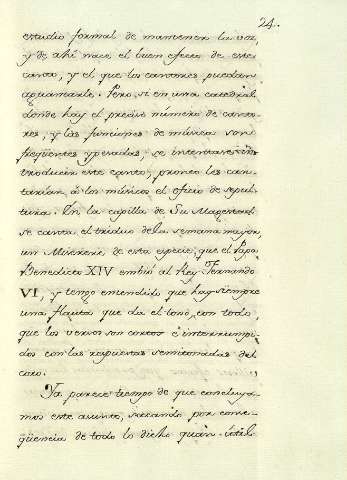 24.
estudio formal de mantener la voz,
y de ahi nace el buen efecto de este
canto, y el que los cantores puedan
aguantarle. Pero si en una catedral
donde hay el preciso número de canto-
res, y las funciones de música son
freqüentes y pesadas, se intentase in-
troducir este canto, pronto les can-
tarian á los músicos el oficio de sepul-
tura. En la capilla de Su Magestad
se canta el triduo de la semana mayor,
un Miserere de esta especie, que el Papa
Benedicto XIV embió al Rey Fernando
VI, y tengo entendido que hay siempre
una flauta que da el tono, con todo
que los versos son cortos é interrumpi-
dos con las respuestas semitonadas del
coro.
Ya parece tiempo de que concluya-
mos este asunto, sacando por conse-
qüencia de todo lo dicho quán útil